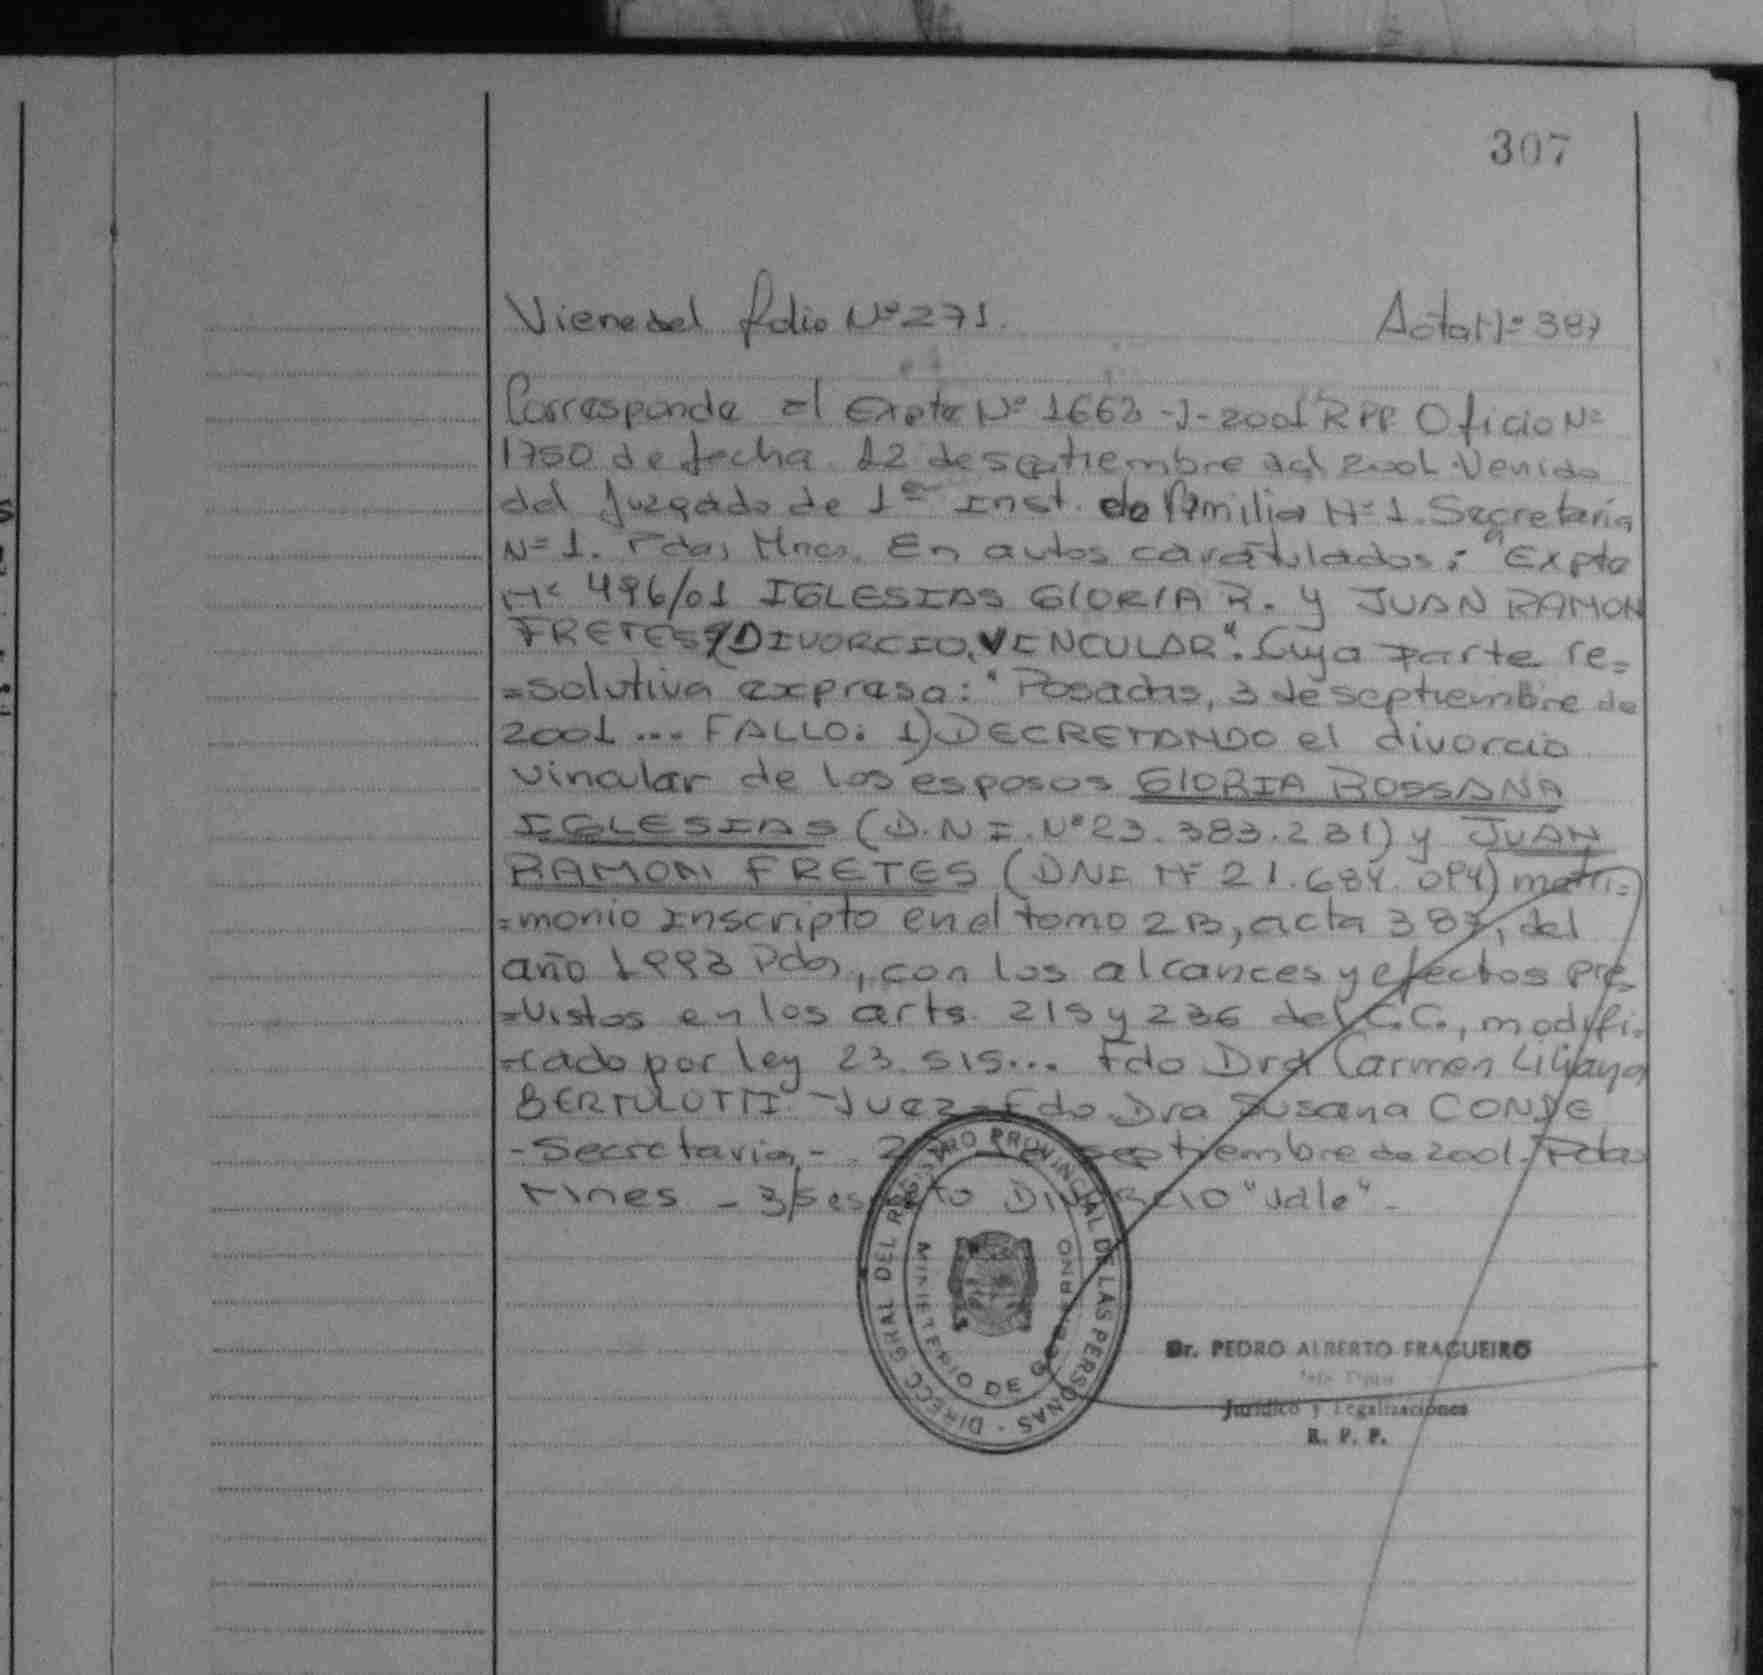 307
Viene del folio Nº 271. Acta Nº 387
Corresponde al Expte Nº 1663 -J- 2001 RPP Oficio Nº
1750 de fecha 12 de septiembre del 2001. Venido
del Juzgado de 1ª Inst. de Familia Nº 1. Secretaría
Nº 1. Pdas, Mnes. En autos caratulados: "Expte
Nº 496/01 IGLESIAS GLORIA R. y JUAN RAMON
FRETES S/DIVORCIO VINCULAR". Cuya parte re=
=solutiva expresa: "Posadas, 3 de septiembre de
2001 ... FALLO: 1) DECRETANDO el divorcio
vincular de los esposos GLORIA ROSSANA
IGLESIAS (D.N.I. Nº 23.383.231) y JUAN
RAMON FRETES (DNI Nº 21.684.094) matri=
=monio Inscripto en el tomo 2B, acta 387, del
año 1993 Pdas, con los alcances y efectos pre=
=vistos en los arts. 215 y 236 del C.C., modifi=
=cado por ley 23.515... Fdo Dra Carmen Liliana
BERTULOTTI - Juez - Fdo. Dra Susana CONDE
-Secretaria-. septiembre de 2001. Pdas
Mnes - DIVORCIO "vale".-
DIRECC. GRAL. DEL REGISTRO PROVINCIAL DE LAS PERSONAS -
MINISTERIO DE GOBIERNO
Dr. PEDRO ALBERTO FRAGUEIRO
Jefe Dpto
Jurídico y Legalizaciones
R. P. P.